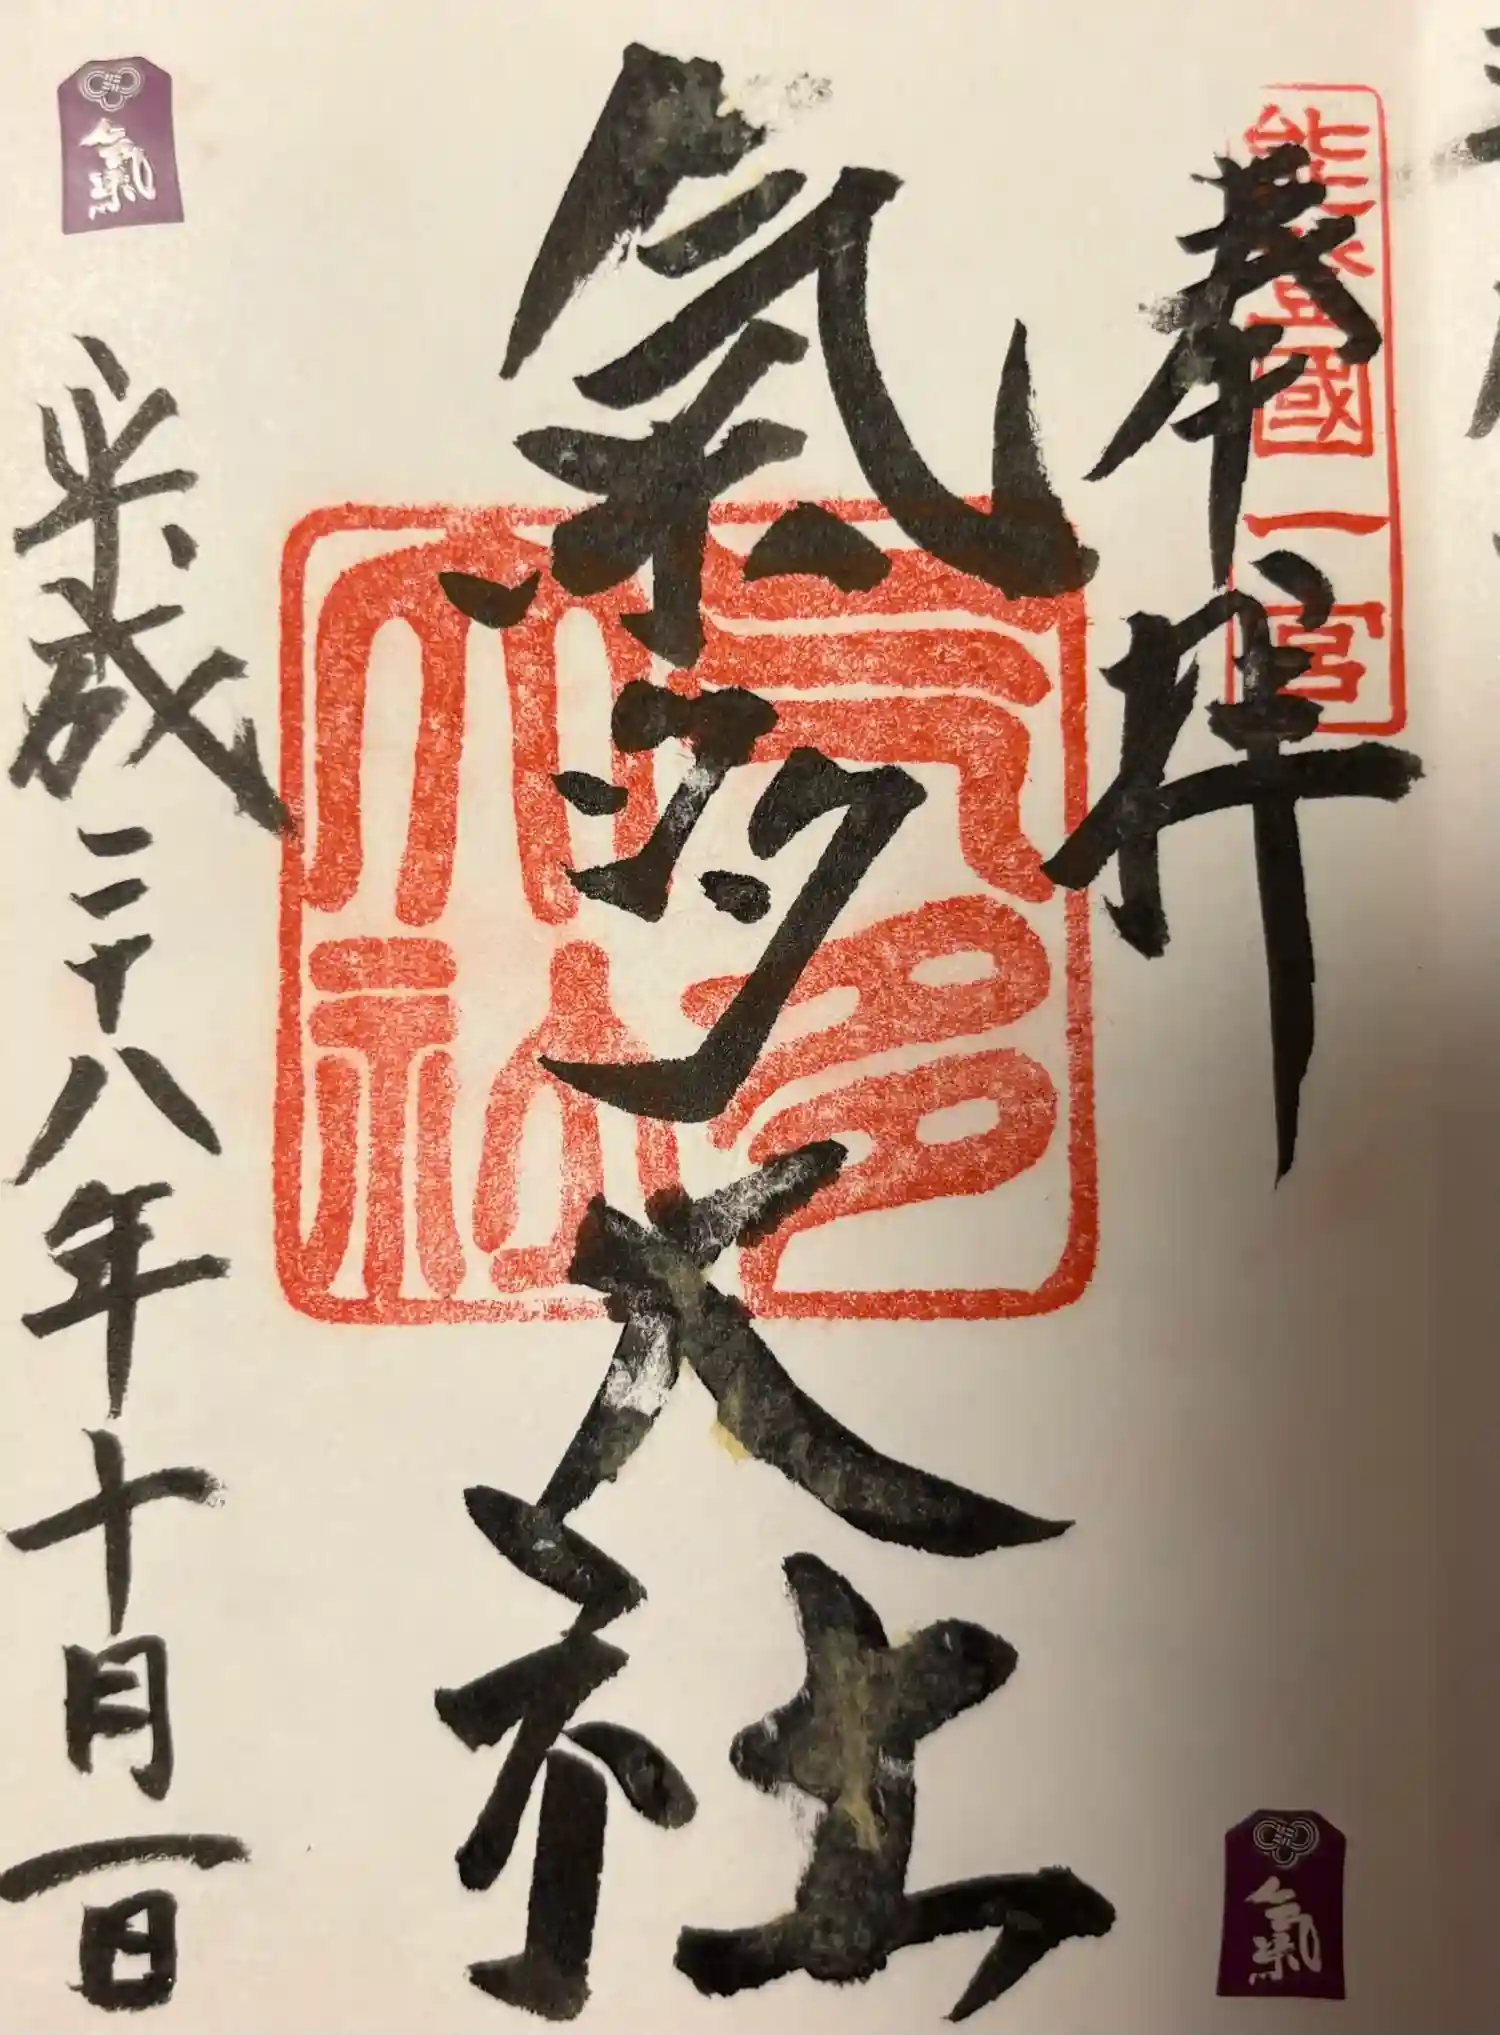 奉拝
能登國一宮
氣多大社
氣多大社
平成二十八年十月一日
氣
氣